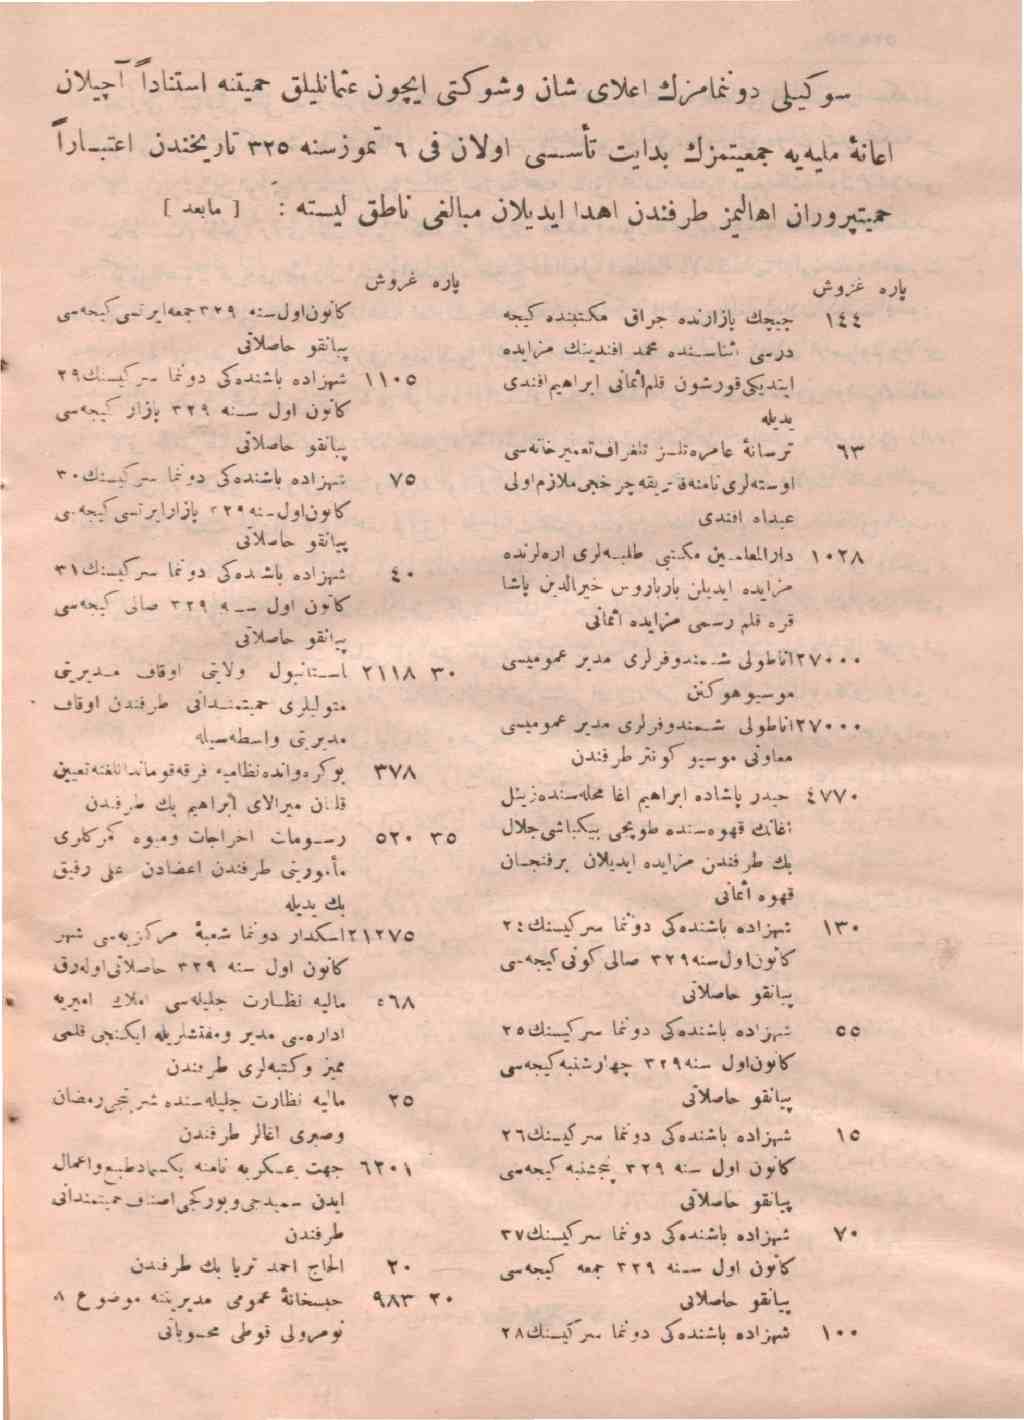 سوكیلی دوننمامزك اعلای شان وشوكتی ایچون عثمانلیلق حمیتنه استناداً آچیلان
اعانهٔ ملیه‌یه جمعیتمزك بدایت تأسسی اولان فی ٦ تموز سنه ٣٢٥ تاریخندن اعتباراً
حمیتپروران اهالیمز طرفندن اهدا ایدیلان مبالغی ناطق لیسته : [ مابعد ]
پاره غروش
١٤٤ چیچك بازارنده چراق مكتبنده كیجه
درسی اثناسنده محمد افندینك مزایده
ایتدیكی قورشون قلم اثمانی ابراهیم افندی
یدیله
٦٣ ترسانهٔ عامره تلسز تلغراف تعمیرخانه‌سی
اوسته‌لری نامنه فابریقه چرخجی ملازم اولی
عبدالله افندی
١٠٢٨ دارالمعلمین مكتبی طلبه‌لری اره‌لرنده
مزایده ایدیلن بارباروس خیرالدین پاشا
قره قلم رسمی مزایده اثمانی
٢٧٠٠٠ اناطولی شمندوفرلری مدیر عمومیسی
موسیو هوكنن
٢٧٠٠٠ اناطولی شمندوفرلری مدیر عمومیسی
معاونی موسیو كونتر طرفندن
٤٧٧٠ حیدر پاشاده ابراهیم اغا محله‌سنده زینل
اغانك قهوه‌سنده طوپجی بیكباشی جلال
بك طرفندن مزایده ایدیلان بر فنجان
قهوه اثمانی
١٣٠ شهزاده باشنده‌كی دوننما سركیسنك ٢٤
كانون اول سنه ٣٢٩ صالی كونی كیجه‌سی
پیانقو حاصلاتی
٥٥ شهزاده باشنده‌كی دوننما سركیسنك ٢٥
كانون اول سنه ٣٢٩ چهارشنبه كیجه‌سی
پیانقو حاصلاتی
١٥ شهزاده باشنده‌كی دوننما سركیسنك ٢٦
كانون اول سنه ٣٢٩ پنجشنبه كیجه‌سی
پیانقو حاصلاتی
٧٠ شهزاده باشنده‌كی دوننما سركیسنك ٢٧
كانون اول سنه ٣٢٩ جمعه كیجه‌سی
پیانقو حاصلاتی
١٠٠ شهزاده باشنده‌كی دوننما سركیسنك ٢٨
پاره غروش
كانون اول سنه ٣٢٩ جمعه ایرتسی كیجه‌سی
پیانقو حاصلاتی
١١٠٥ شهزاده باشنده‌كی دوننما سركیسنك ٢٩
كانون اول سنه ٣٢٩ بازار كیجه‌سی
پیانقو حاصلاتی
٧٥ شهزاده باشنده‌كی دوننما سركیسنك ٣٠
كانون اول سنه ٣٢٩ بازار ایرتسی كیجه‌سی
پیانقو حاصلاتی
٤٠ شهزاده باشنده‌كی دوننما سركیسنك ٣١
كانون اول سنه ٣٢٩ صالی كیجه‌سی
پیانقو حاصلاتی
٣٠ ٢١١٨ استانبول ولایتی اوقاف مدیریتی
متولیلری حمیتمندانی طرفندن اوقاف
مدیریتی واسطه‌سیله
٣٧٨ بوكره وانده نظامیه فرقه قوماندانلغنه تعیین
قلنان میرالای ابراهیم بك طرفندن
٣٥ ٥٢٠ رسومات اخراجات ومیوه كمركلری
مأموریتی طرفندن اعضادن علی رفیق
بك یدیله
٢١٢٧٥ اسكدار دوننما شعبهٔ مركزیه‌سی شهر
كانون اول سنه ٣٢٩ حاصلاتی اوله‌رق
٥٦٨ مالیه نظارت جلیله‌سی املاك امیریه
اداره‌سی مدیر ومفتشلریله ایكنجی قلمی
ممیز وكتبه‌لری طرفندن
٢٥ مالیه نظارت جلیله‌سنده شربتجی رمضان
وصبری اغالر طرفندن
٦٢٠١ جهت عسكریه نامنه یكسماد طبع واعمال
ایدن سمیدجی وبوركجی اصناف حمیتمندانی
طرفندن
٢٠ الحاج احمد ثریا بك طرفندن
٢٠ ٩٨٣ حبسخانهٔ عمومی مدیریتنه موضوع ٨
نومرولی قوطی محسوباتی